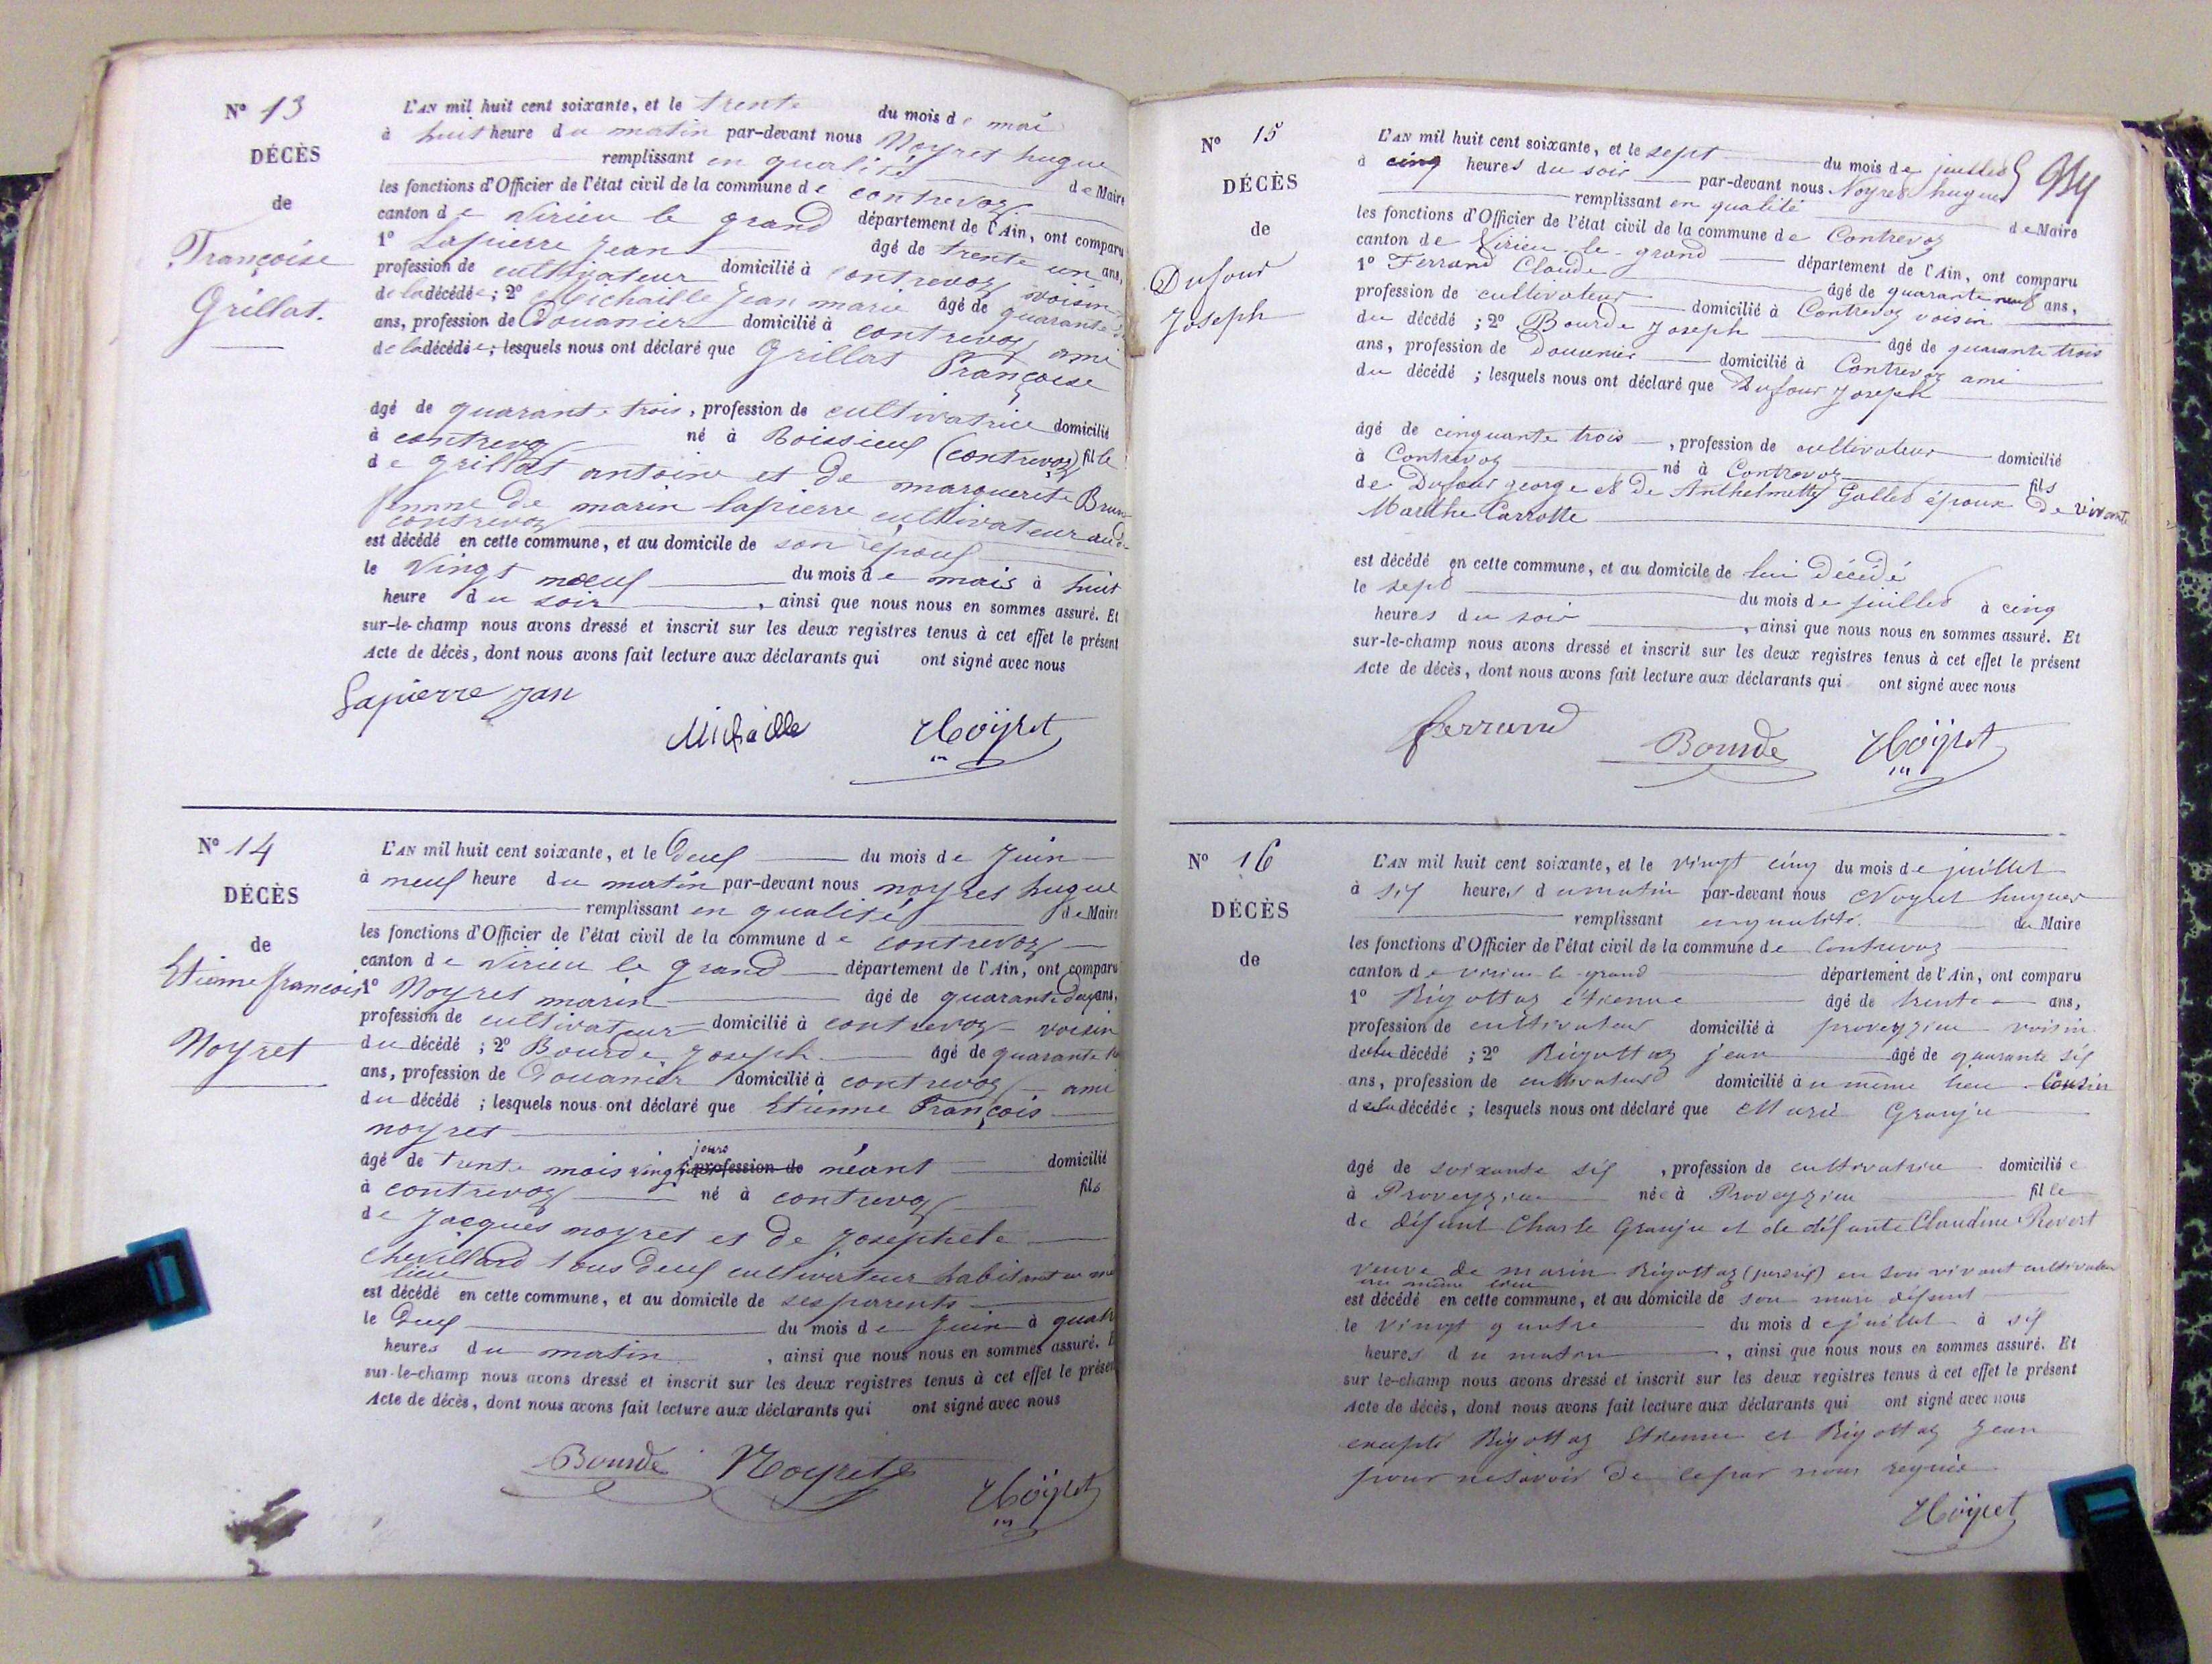 N° 13
DÉCÈS
de
Françoise
Grillat.
L'AN mil huit cent soixante, et le trente du mois de mai
à huit heure du matin par-devant nous Noyret hugue
remplissant en qualité de Maire
les fonctions d'Officier de l'état civil de la commune de contrevoz
canton de Virieu le grand département de l'Ain, ont comparu
1° Lapierre Jean âgé de trente un ans,
profession de cultivateur domicilié à contrevoz voisin
de la décédée; 2° Michaille Jean marie âgé de quarante
ans, profession de Douanier domicilié à contrevoz ami
de la décédée; lesquels nous ont déclaré que Grillat Françoise
âgé de quarante trois, profession de cultivatrice domicilié
à contrevoz né à Boissieux (contrevoz) fille
de grillat antoine et de marguerite Brun
femme de marin lapierre cultivateur au
contrevoz
est décédé en cette commune, et au domicile de son époux
le Vingt noeuf du mois de mais à huit
heure du soir, ainsi que nous nous en sommes assuré. Et
sur-le-champ nous avons dressé et inscrit sur les deux registres tenus à cet effet le présent
Acte de décès, dont nous avons fait lecture aux déclarants qui ont signé avec nous
Lapierre Jan
Michaille Noÿret
N° 14
DÉCÈS
de
Etienne francois
Noyret
L'AN mil huit cent soixante, et le Deux du mois de Juin
à neuf heure du matin par-devant nous noyret hugue
remplissant en qualité de Maire
les fonctions d'Officier de l'état civil de la commune de contrevoz
canton de Virieu le grand département de l'Ain, ont comparu
1° Noyret marin âgé de quarante deux ans,
profession de cultivateur domicilié à contrevoz voisin
du décédé; 2° Bourde Joseph âgé de quarante
ans, profession de Douanier domicilié à contrevoz ami
du décédé; lesquels nous ont déclaré que Etienne François
noyret
jours
âgé de trente mois vingt profession de néant domicilié
à contrevoz né à contrevoz fils
de Jacques noyret et de Josephete
chevillard tous deux cultivateur habitant au
lieu
est décédé en cette commune, et au domicile de ses parents
le Deux du mois de Juin à quatre
heures du matin, ainsi que nous nous en sommes assuré. Et
sur-le-champ nous avons dressé et inscrit sur les deux registres tenus à cet effet le présent
Acte de décès, dont nous avons fait lecture aux déclarants qui ont signé avec nous
Bourde Noyret
Noÿret
N° 15
DÉCÈS
de
Dufour
Joseph
L'AN mil huit cent soixante, et le sept du mois de juillet
à cinq heures du soir par-devant nous Noyret hugues
remplissant en qualité de Maire
les fonctions d'Officier de l'état civil de la commune de Contrevoz
canton de Virieu-le-grand département de l'Ain, ont comparu
1° Ferrand Claude âgé de quarante neuf ans,
profession de cultivateur domicilié à Contrevoz voisin
du décédé; 2° Bourde Joseph âgé de quarante trois
ans, profession de Douanier domicilié à Contrevoz ami
du décédé; lesquels nous ont déclaré que Dufour Joseph
âgé de cinquante trois, profession de cultivateur domicilié
à Contrevoz né à Contrevoz fils
de Dufour george et de Anthelmette Gallet époux de vivante
Marthe Carrotte
est décédé en cette commune, et au domicile de lui décédé
le sept du mois de juillet à cinq
heures du soir, ainsi que nous nous en sommes assuré. Et
sur-le-champ nous avons dressé et inscrit sur les deux registres tenus à cet effet le présent
Acte de décès, dont nous avons fait lecture aux déclarants qui ont signé avec nous
ferrand Bourde Noÿret
N° 16
DÉCÈS
de
L'AN mil huit cent soixante, et le vingt cinq du mois de juillet
à six heures du matin par-devant nous Noyret hugues
remplissant en qualité de Maire
les fonctions d'Officier de l'état civil de la commune de Contrevoz
canton de virieu-le-grand département de l'Ain, ont comparu
1° Rigottaz étienne âgé de trente ans,
profession de cultivateur domicilié à proveyzieu voisin
de la décédé; 2° Rigottaz jean âgé de quarante six
ans, profession de cultivateur domicilié à u même lieu Cousin
de la décédée; lesquels nous ont déclaré que Marie Granju
âgé de soixante six, profession de cultivatrice domiciliée
à Proveyzieu née à Proveyzieu fille
de défunt Charle Granju et de défunte Claudine Revert
veuve de marin Rigottaz en son vivant cultivateur
au même lieu
est décédé en cette commune, et au domicile de son mari défunt
le vingt quatre du mois de juillet à six
heures du matin, ainsi que nous nous en sommes assuré. Et
sur le-champ nous avons dressé et inscrit sur les deux registres tenus à cet effet le présent
Acte de décès, dont nous avons fait lecture aux déclarants qui ont signé avec nous
excepté Rigottaz Etienne et Rigottaz Jean
pour ne savoir de ce par nous requis
Noÿret